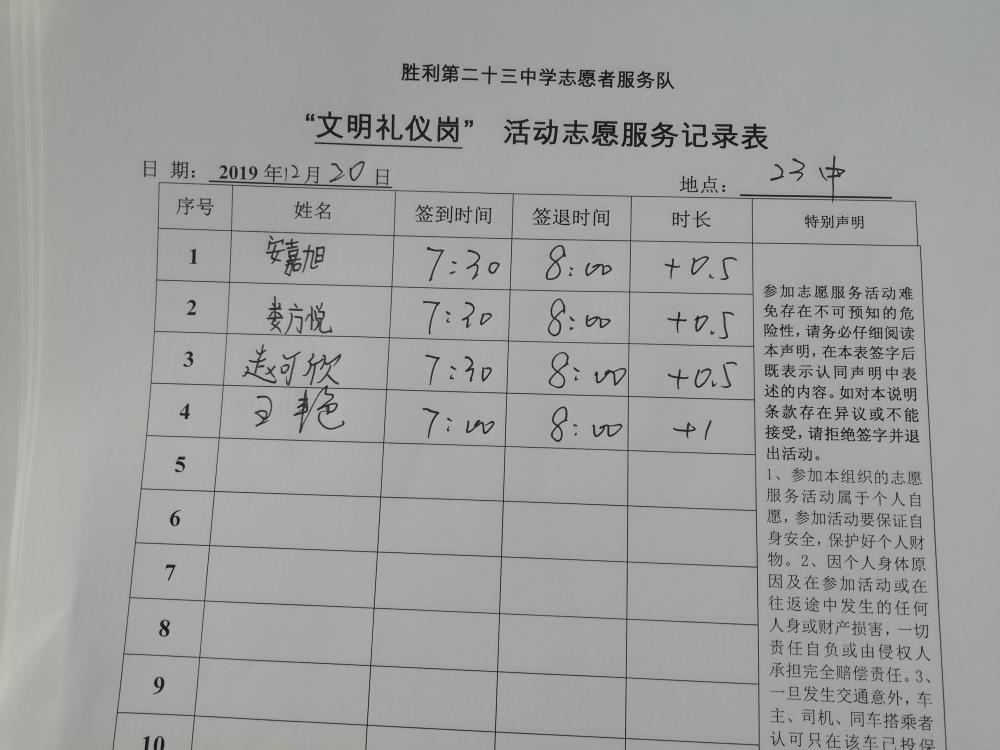 胜利第二十三中学志愿者服务队
“文明礼仪岗” 活动志愿服务记录表
日 期: 2019年12月20日 地点: 23中
序号 姓名 签到时间 签退时间 时长 特别声明
1 安嘉旭 7:30 8:00 +0.5
2 娄方悦 7:30 8:00 +0.5
3 赵可欣 7:30 8:00 +0.5
4 王艳 7:00 8:00 +1
5
6
7
8
9
10
参加志愿服务活动难
免存在不可预知的危
险性,请务必仔细阅读
本声明,在本表签字后
既表示认同声明中表
述的内容。如对本说明
条款存在异议或不能
接受,请拒绝签字并退
出活动。
1、参加本组织的志愿
服务活动属于个人自
愿,参加活动要保证自
身安全,保护好个人财
物。2、因个人身体原
因及在参加活动或在
往返途中发生的任何
人身或财产损害,一切
责任自负或由侵权人
承担完全赔偿责任。3、
一旦发生交通意外,车
主、司机、同车搭乘者
认可只在该车已投保